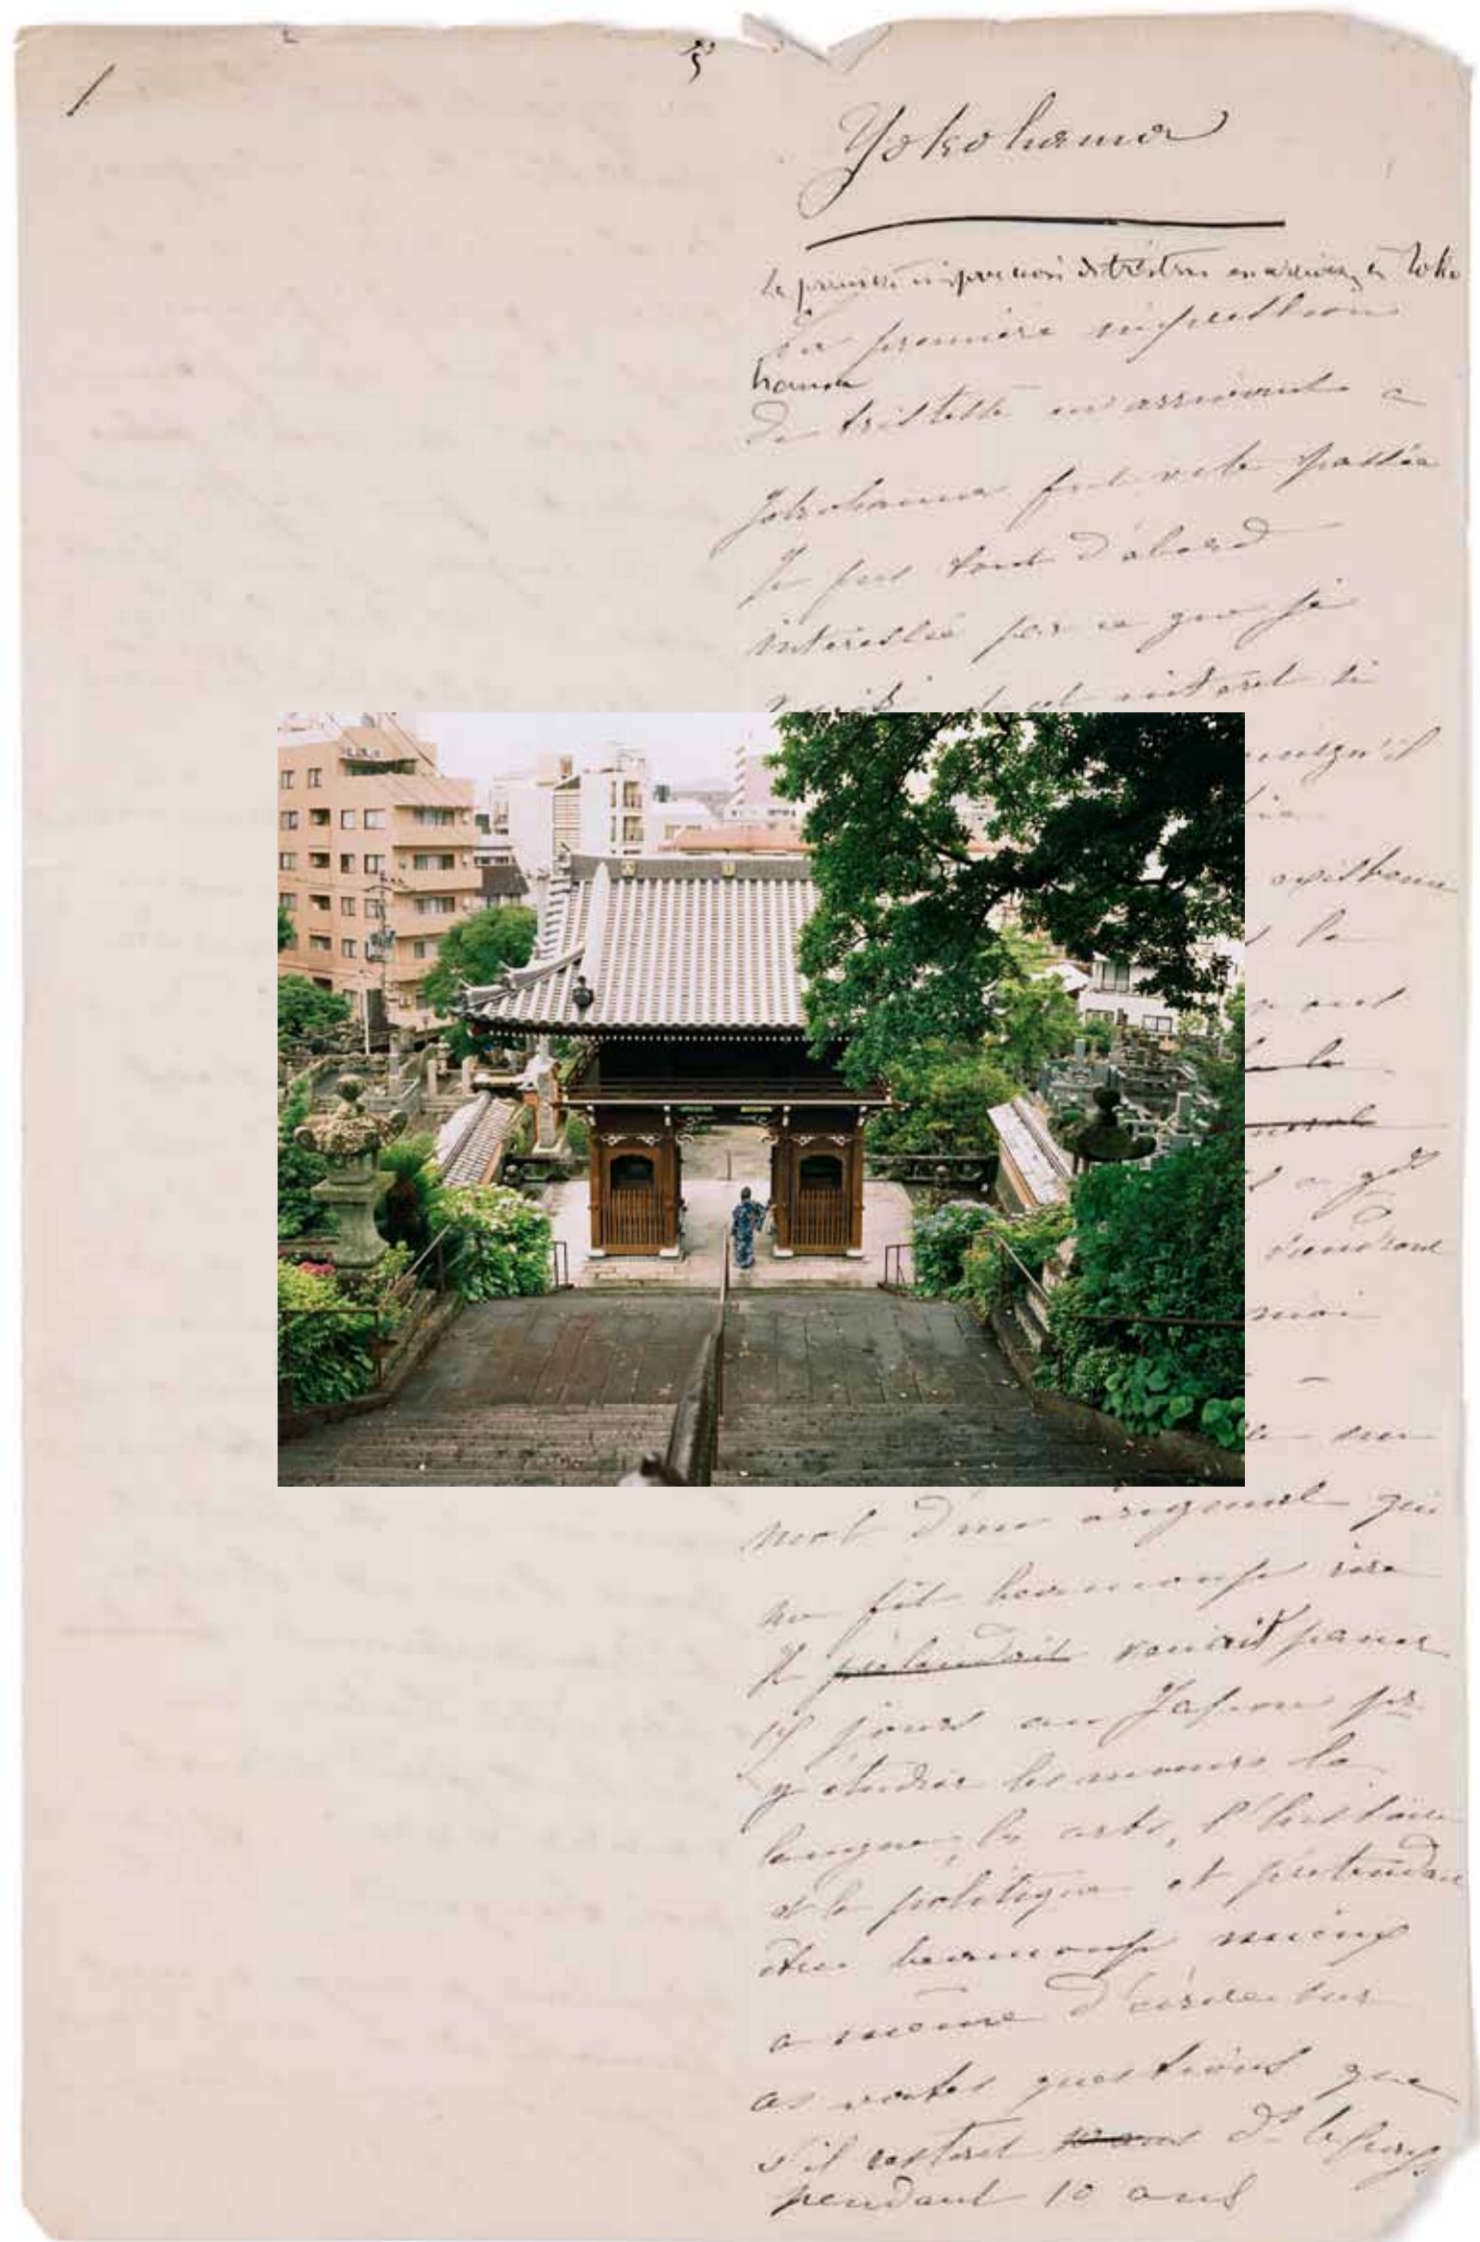 1
Yokohama
La première impression de tristesse en arrivant à Yoko
La première impression
hama
De tristesse en arrivant a
Yokohama fut vite passée
Je fus tout d'abord
intéressée par ce que je
et cet intéret
qu'il
existence
la
ont
la
a gd
viendront
moi
mot d'un original qui
me fit beaucoup rire
Il prétendait venait passer
15 jours au Japon pr
y étudier les moeurs la
langue, les arts, l'histoire
et la politique et prétendait
être beaucoup mieux
a meme d'écrire sur
ces vastes questions que
s'il restait 10 ans ds le pays
pendant 10 ans